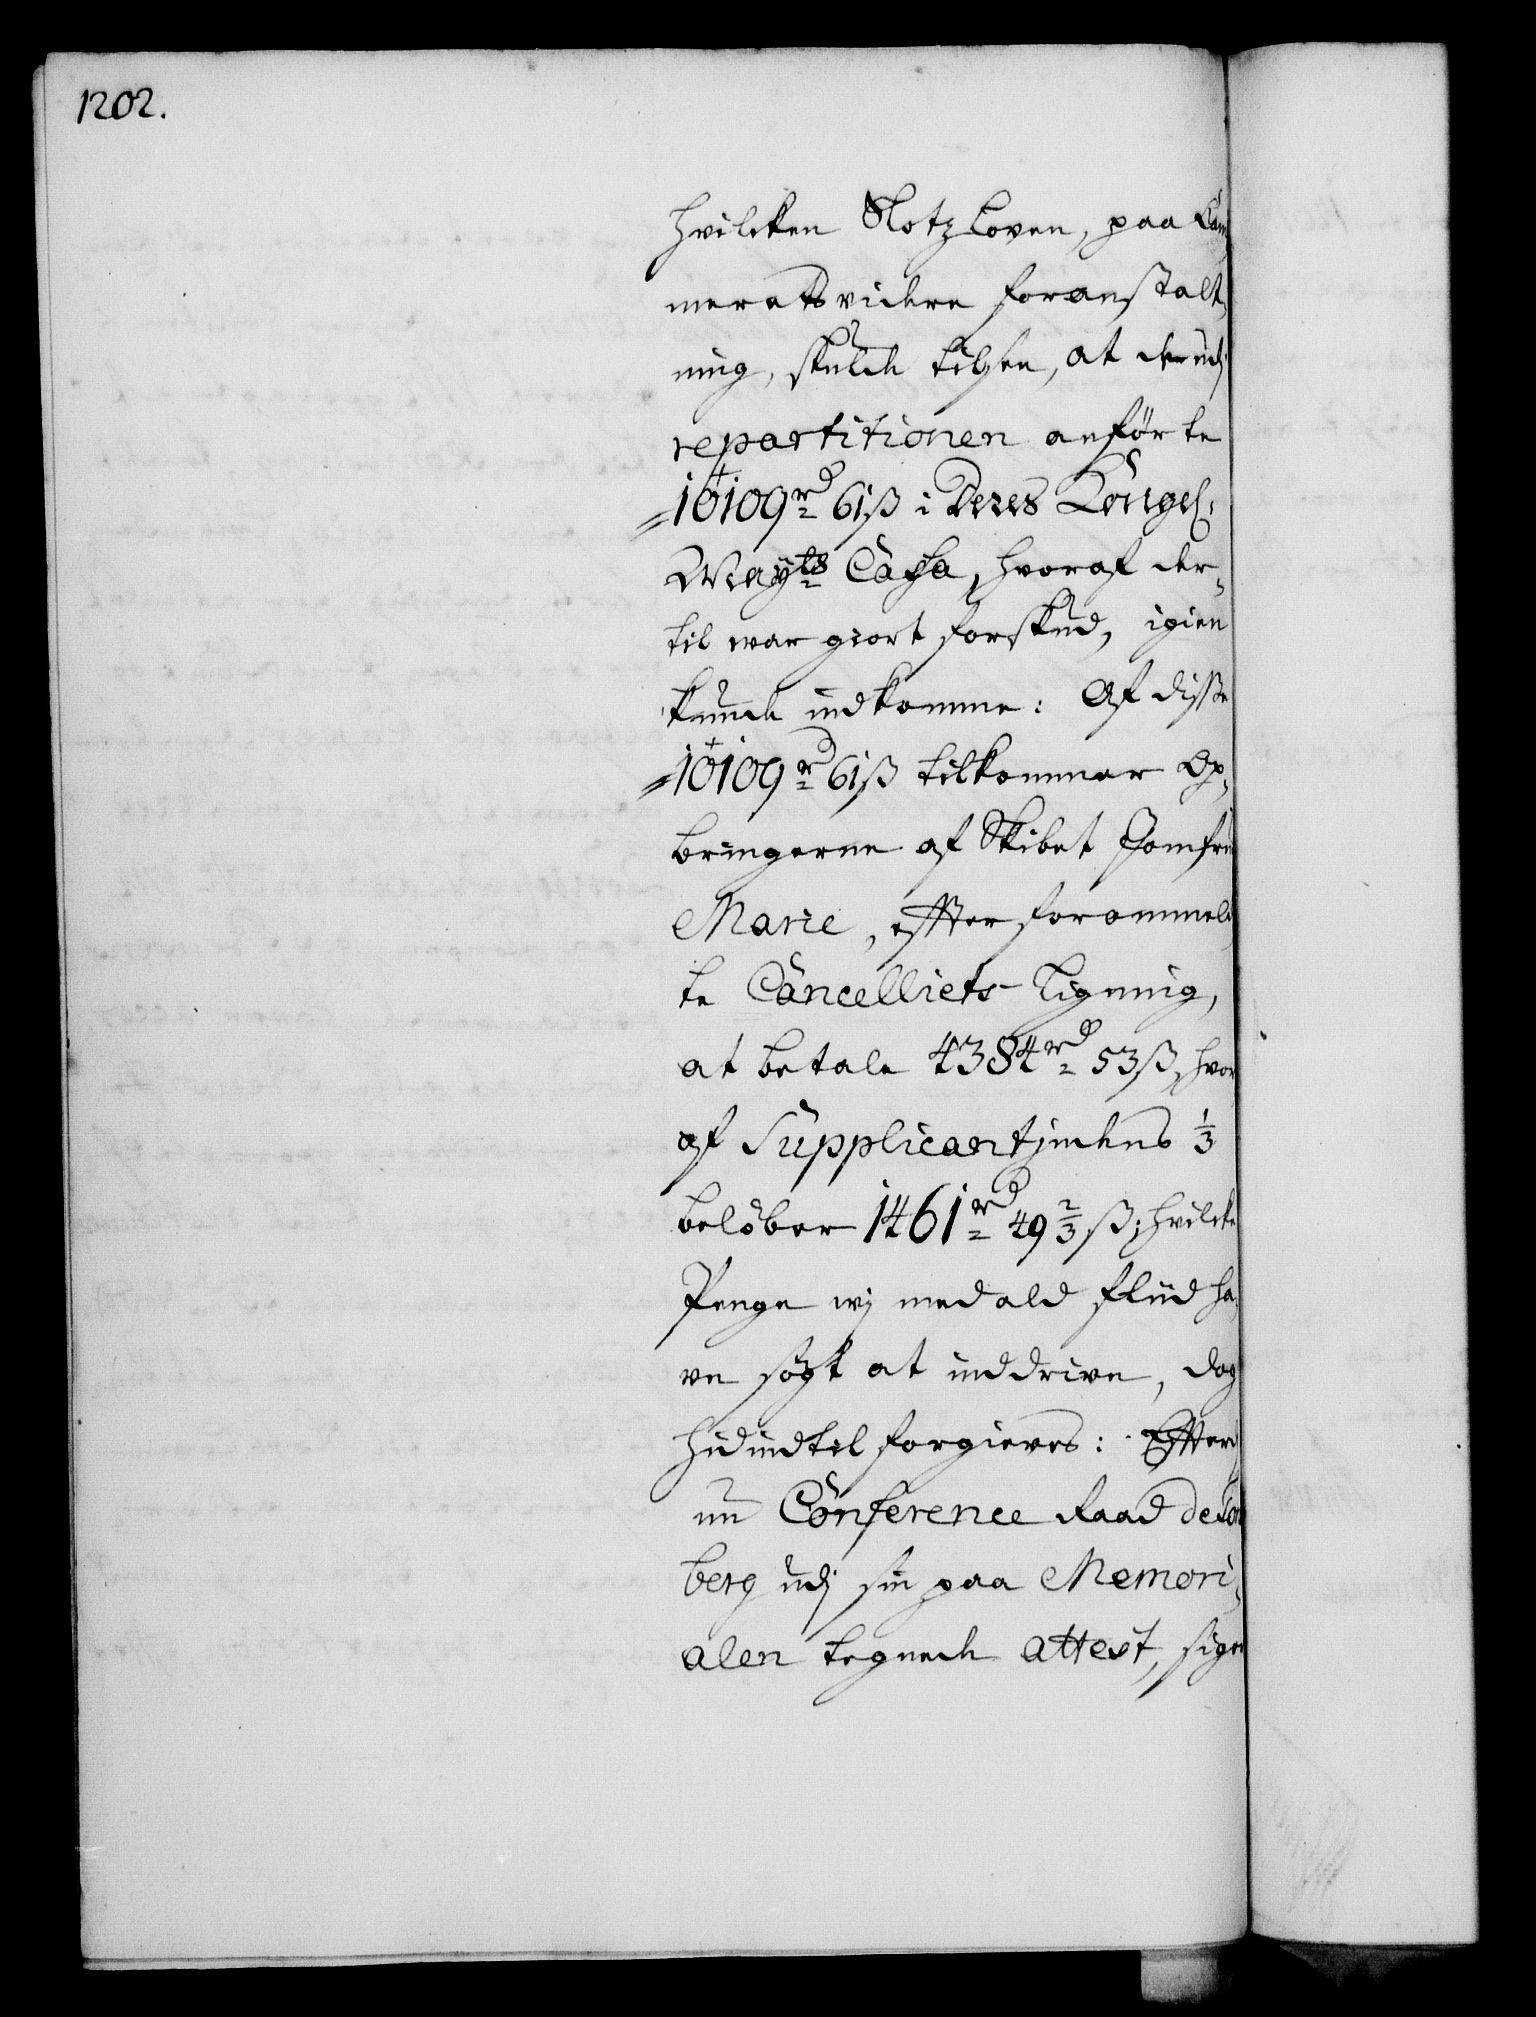 1202.
hvilcken Slotz Loven, paa Cam
merets videre foranstalt,
ning, skulde tilsee, at de udj
repartitionen anførte
10109 rd 61 ß i Deres Kongel:
Mayts Cassa, hvoraf der,
til war giort forskud, igien
kunde indkomme: Af disse
10109 rd 61 ß tilkommer Op,
bringerne af Skibet Jomfru
Marie, effter forommel,
te Cancelliets Ligning,
at betale 4384 rd 53 ß, hvor
af Supplicantindens 1/3
beløber 1461 rd 49 2/3 ß; hvilcke
Penge wj med ald fliid ha,
ve søgt at inddrive, dog
hidindtil forgieves: Effterdj
nu Conference Raad
berg udj sin paa Memori,
alen tegnede attest, siger